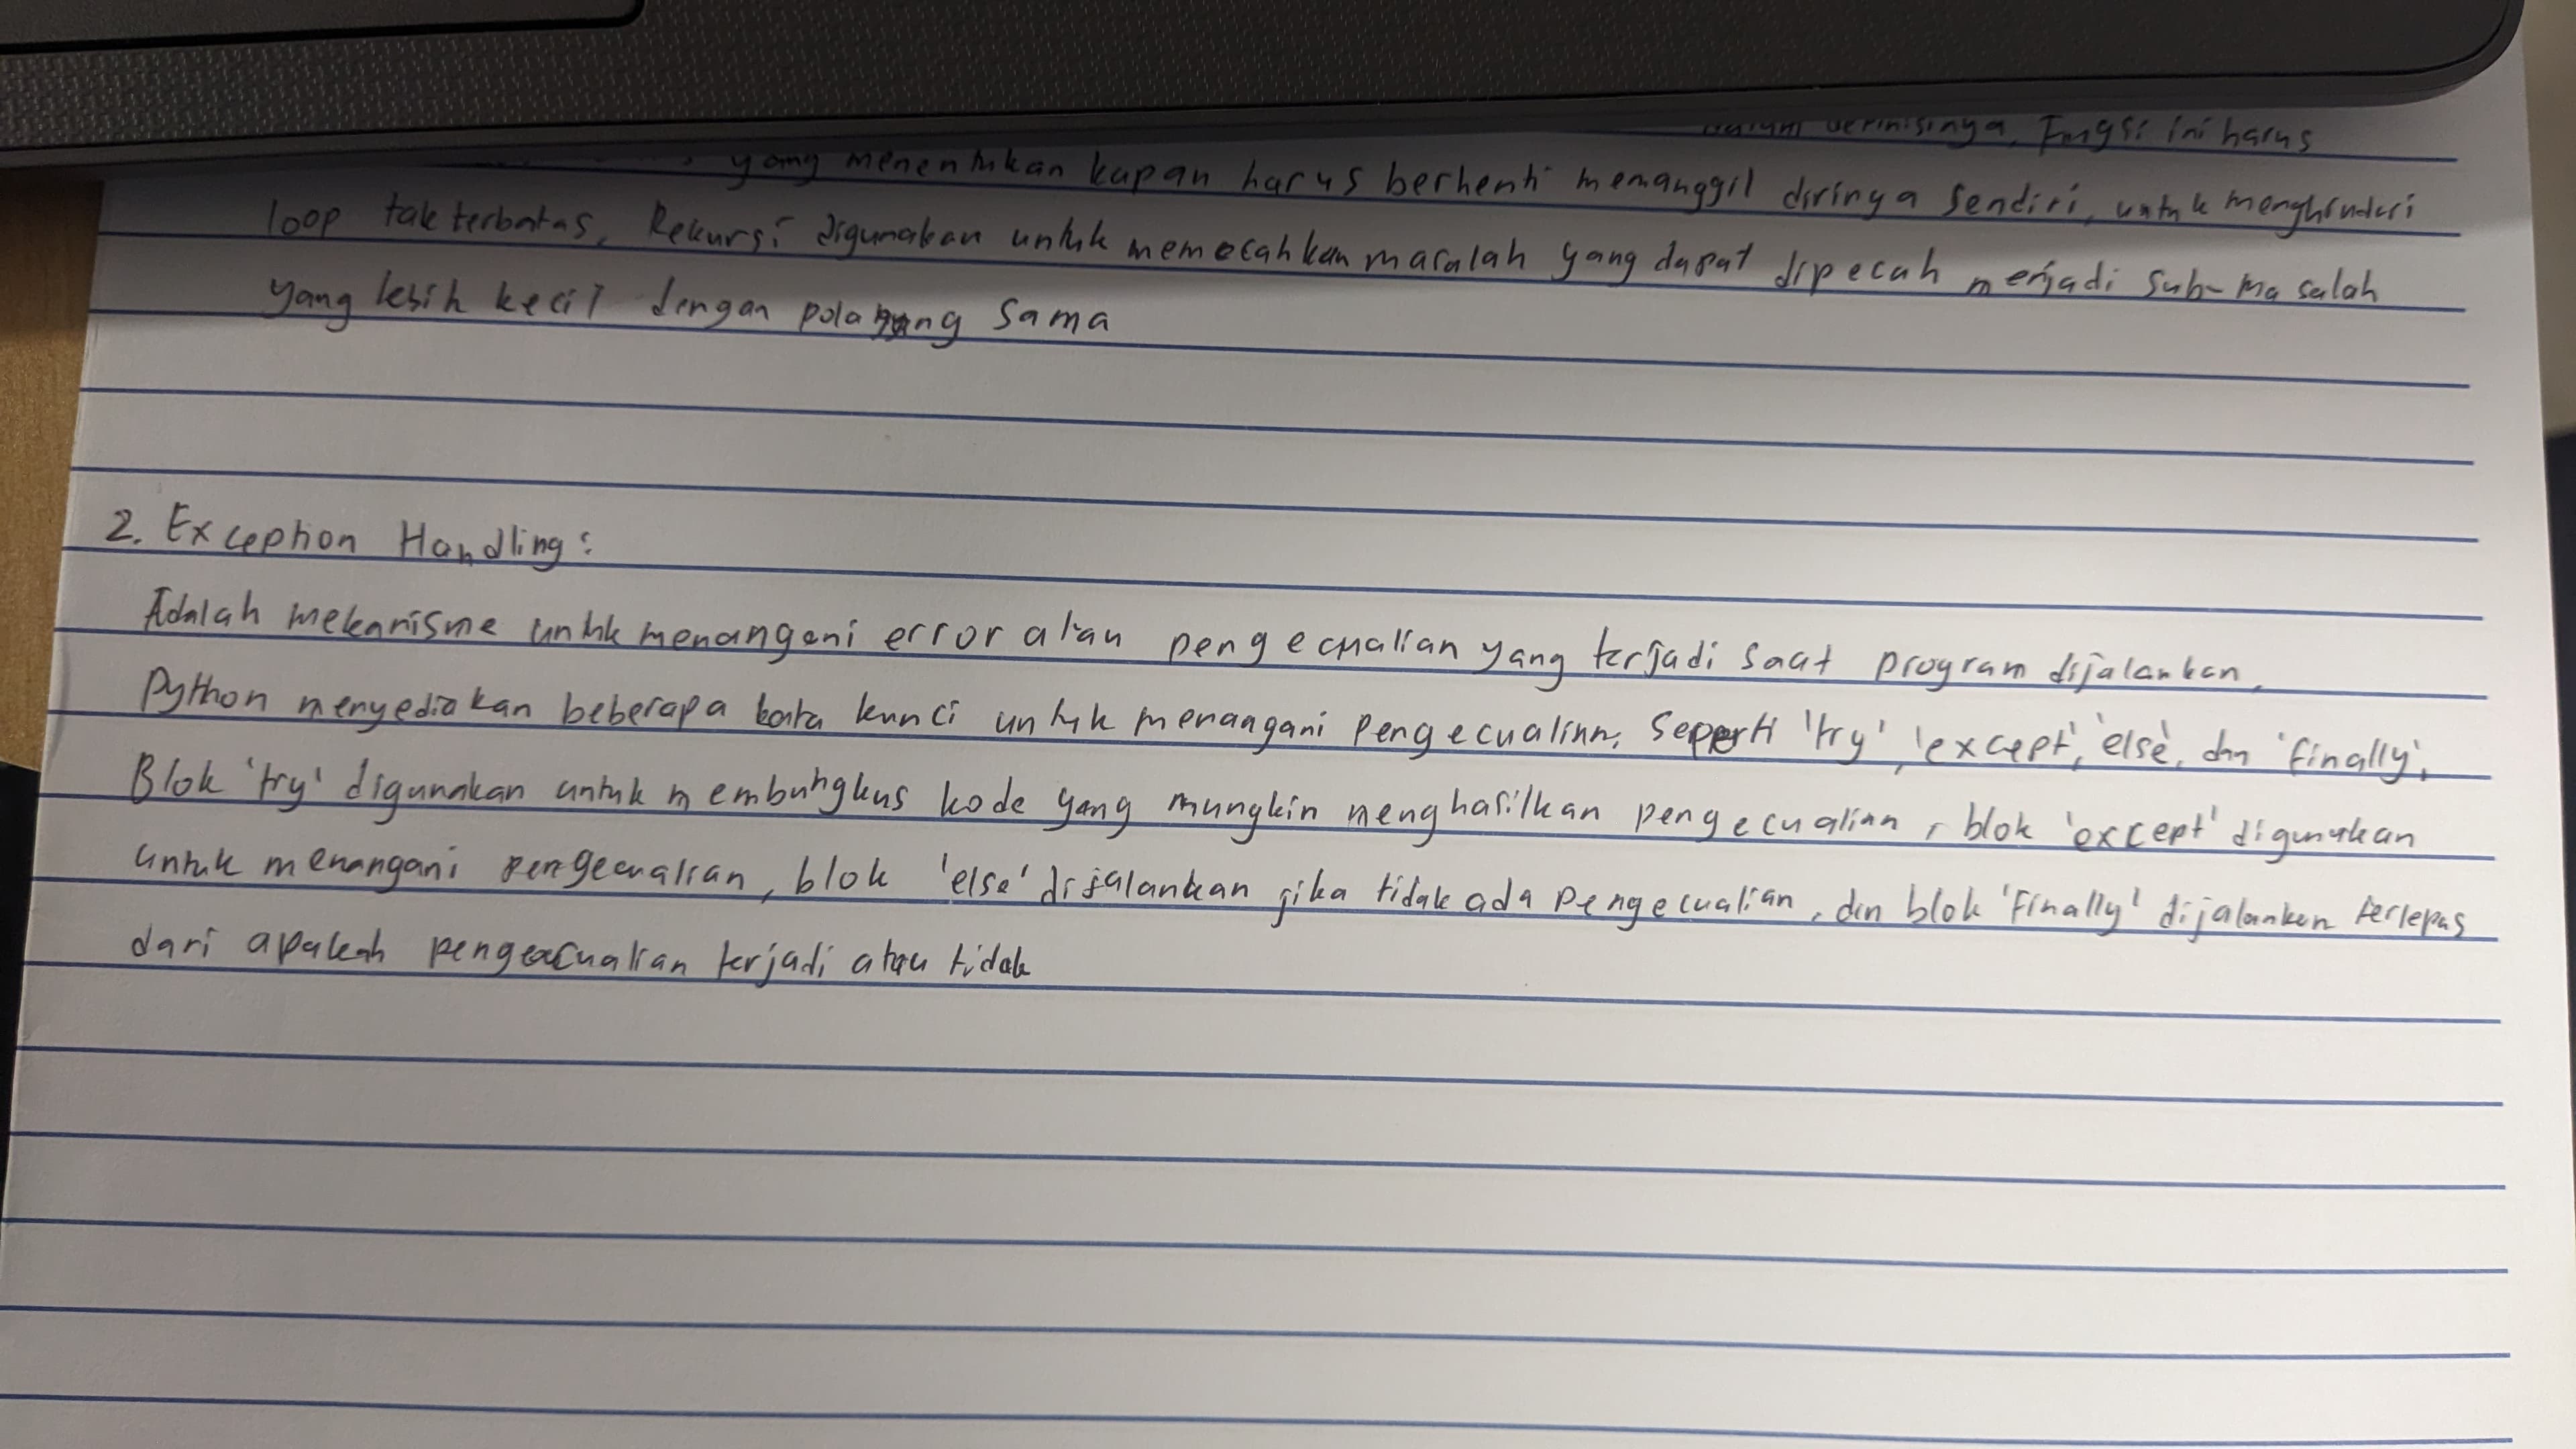 dalam definisinya, Fungsi ini harus
yang menentukan kapan harus berhenti memanggil dirinya sendiri, untuk menghindari
loop tak terbatas. Rekursi digunakan untuk memecahkan masalah yang dapat dipecah menjadi sub-masalah
yang lebih kecil dengan pola yang sama
2. Exception Handling:
Adalah mekanisme untuk menangani error atau pengecualian yang terjadi saat program dijalankan.
Python menyediakan beberapa kata kunci untuk menangani pengecualian, seperti 'try', 'except', 'else', dan 'finally'.
Blok 'try' digunakan untuk membungkus kode yang mungkin menghasilkan pengecualian, blok 'except' digunakan
untuk menangani pengecualian, blok 'else' dijalankan jika tidak ada pengecualian, dan blok 'finally' dijalankan terlepas
dari apakah pengecualian terjadi atau tidak